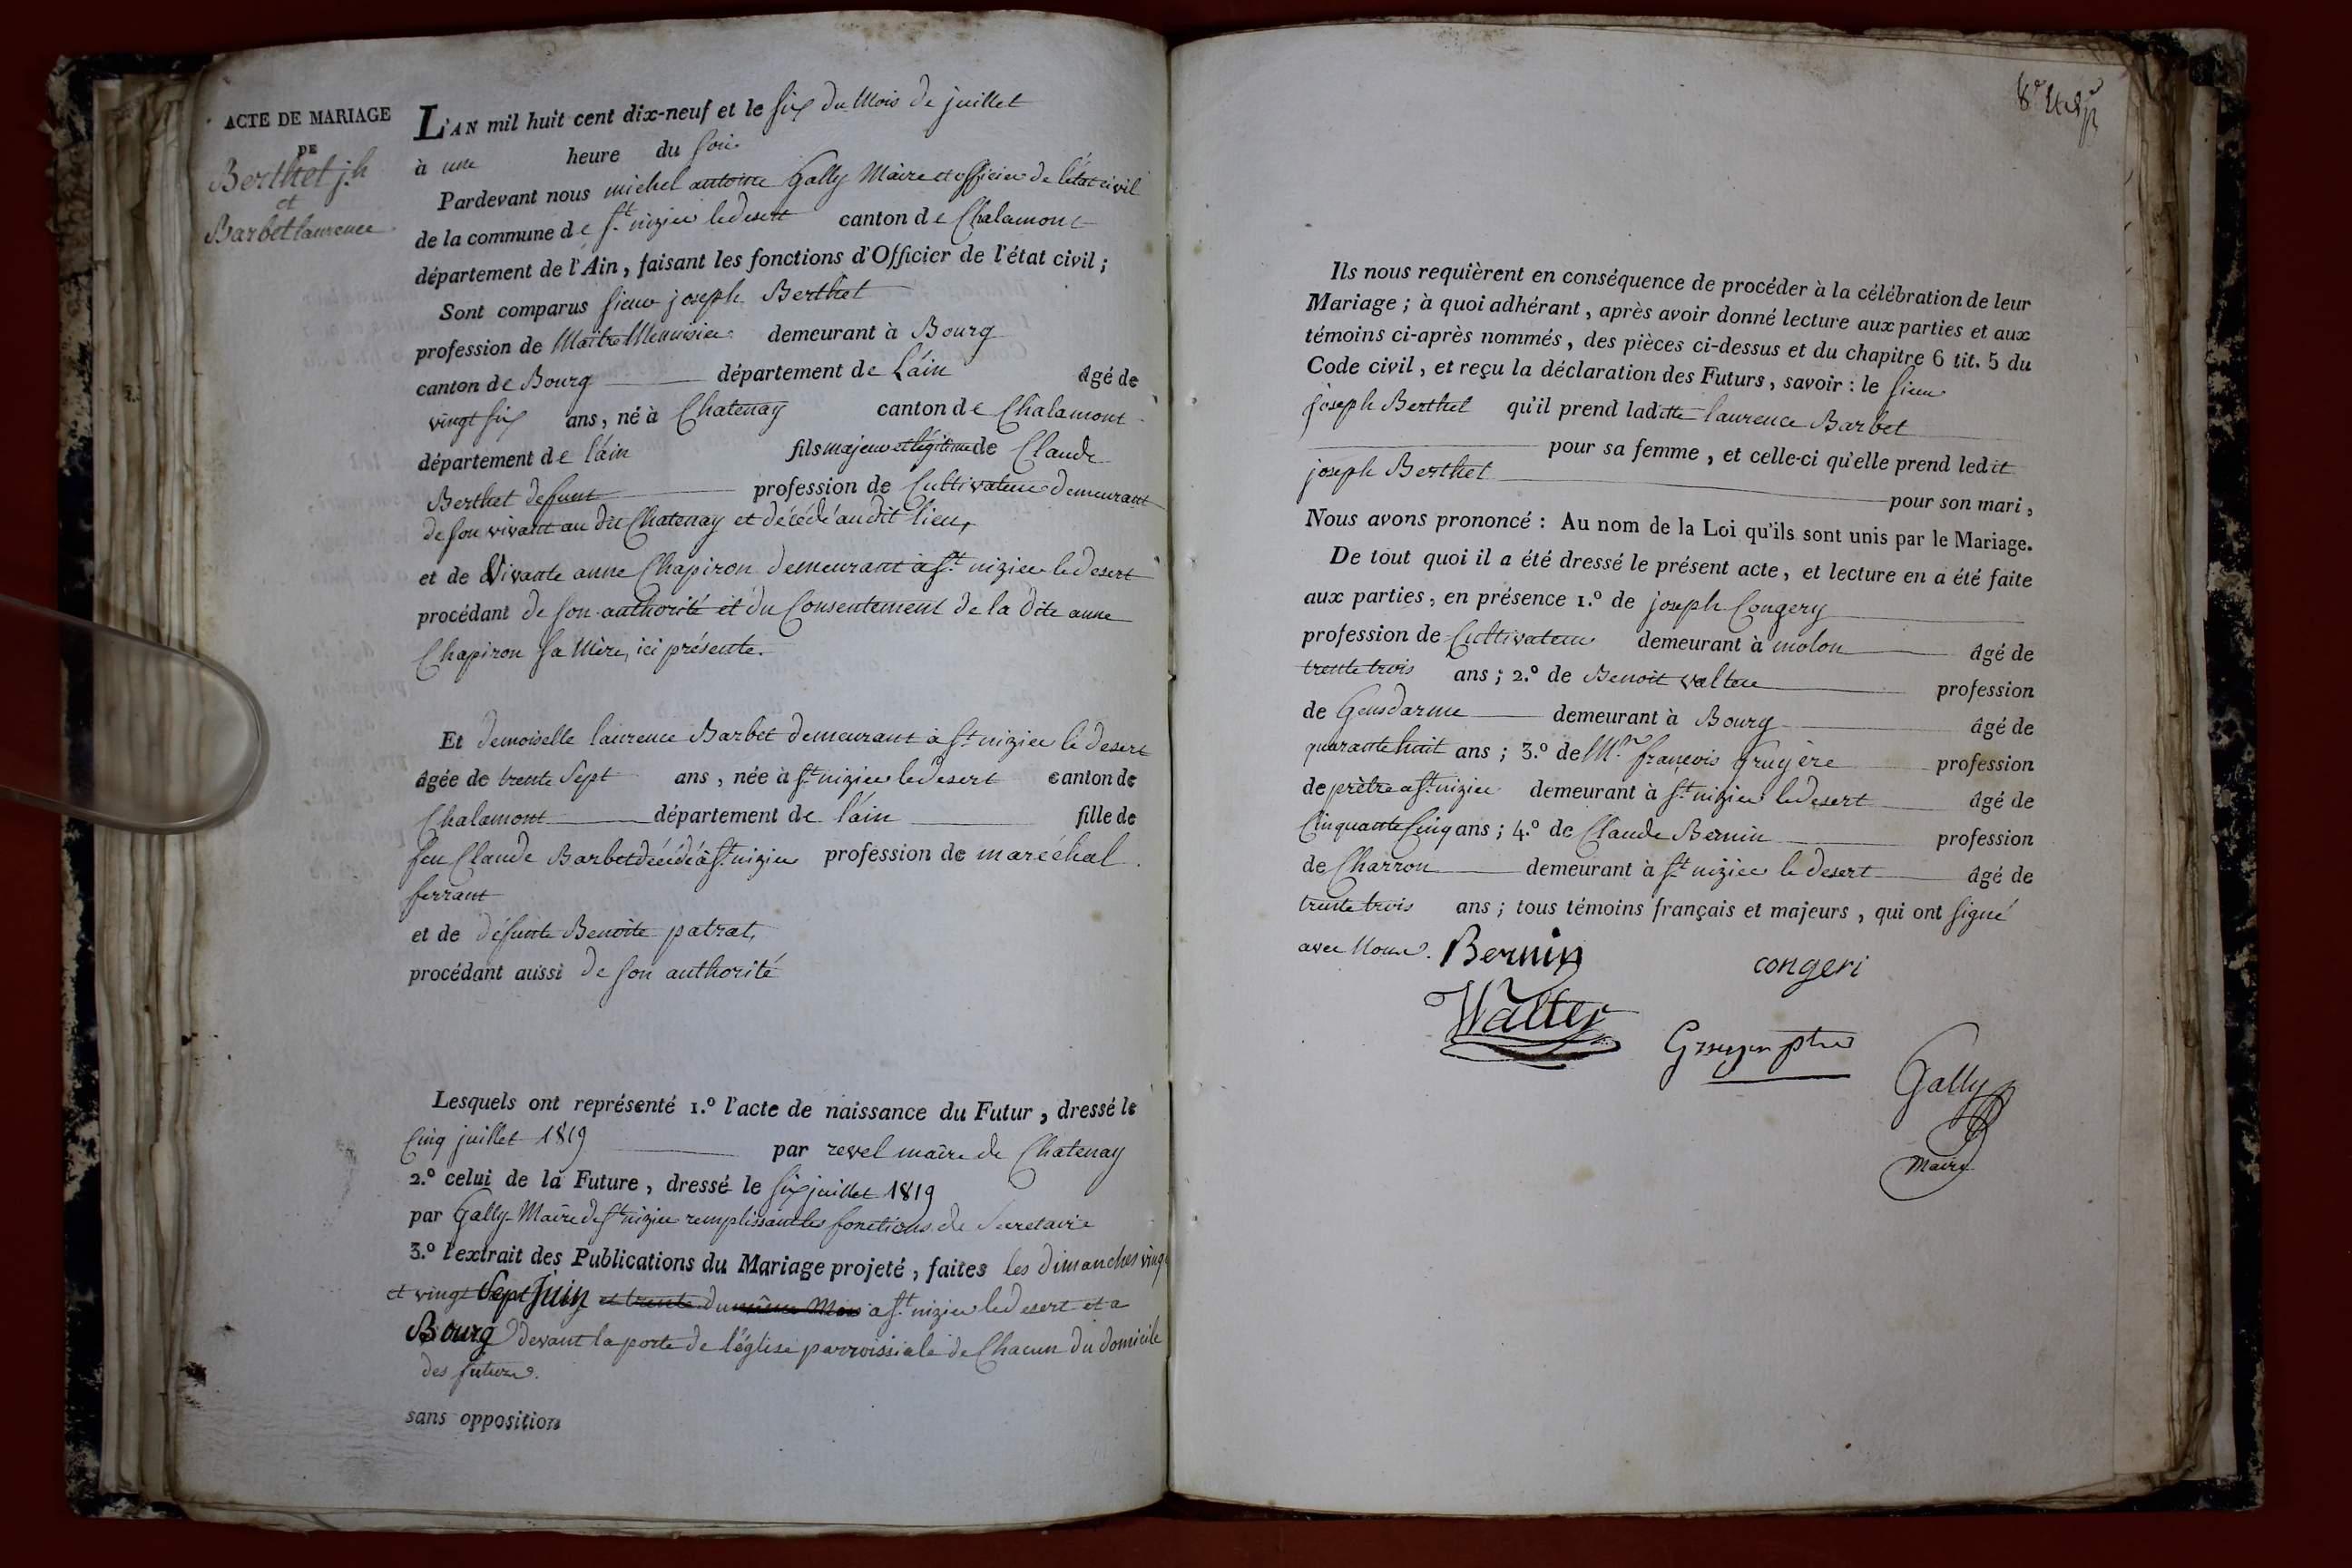 ACTE DE MARIAGE
DE
Berthet j.h
et
Barbet laurence
L'AN mil huit cent dix-neuf et le six du Mois de juillet
à une heure du soir
Pardevant nous michel antoine Gally Maire et officier de l'état civil
de la commune de St. nizier le desert canton de Chalamont
département de l'Ain, faisant les fonctions d'Officier de l'état civil;
Sont comparus sieur joseph Berthet
profession de Maitre Menuisier demeurant à Bourg
canton de Bourg département de L'ain âgé de
vingt six ans, né à Chatenay canton de Chalamont
département de l'ain fils majeur et légitime de Claude
Berthet defunt profession de Cultivateur demeurant
de son vivant au dit Chatenay et décédé au dit lieu,
et de Vivante anne Chapiron demeurant à St. nizier le desert
procédant de son authorité et du Consentement de la dite anne
Chapiron sa Mère, ici présente.
Et demoiselle laurence Barbet demeurant à St nizier le desert
âgée de trente sept ans, née à St nizier le desert canton de
Chalamont département de l'ain fille de
feu Claude Barbet décédé à St. nizier profession de maréchal
ferrant
et de défunte Benoite patrat,
procédant aussi de son authorité
Lesquels ont représenté 1.º l'acte de naissance du Futur, dressé le
Cinq juillet 1819 par revel maire de Chatenay
2.º celui de la Future, dressé le six juillet 1819
par Gally Maire de St nizier remplissant les fonctions de Secretaire
3.º l'extrait des Publications du Mariage projeté, faites les dimanches vingt
et vingt Sept Juin et trente du même Mois a St. nizier le desert et a
Bourg devant la porte de l'église parroissiale de Chacun du domicile
des futurs.
sans opposition
Ils nous requièrent en conséquence de procéder à la célébration de leur
Mariage; à quoi adhérant, après avoir donné lecture aux parties et aux
témoins ci-après nommés, des pièces ci-dessus et du chapitre 6 tit. 5 du
Code civil, et reçu la déclaration des Futurs, savoir: le sieur
joseph Berthet qu'il prend laditte laurence Barbet
pour sa femme, et celle-ci qu'elle prend ledit
joseph Berthet pour son mari,
Nous avons prononcé: Au nom de la Loi qu'ils sont unis par le Mariage.
De tout quoi il a été dressé le présent acte, et lecture en a été faite
aux parties, en présence 1.º de joseph Congery
profession de Cultivateur demeurant à molon âgé de
trente trois ans; 2.º de Benoit valter profession
de Gensdarme demeurant à Bourg âgé de
quarante huit ans; 3.º de Mr. françois Gruyère profession
de prètre a St. nizier demeurant à St. nizier le desert âgé de
Cinquante Cinq ans; 4.º de Claude Bernin profession
de Charron demeurant à St nizier le desert âgé de
trente trois ans; tous témoins français et majeurs, qui ont signé
avec Nous. Bernin
congeri
Walter
Gally
Maire